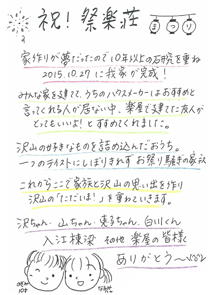 祝！祭楽荘
まつり
家作りが夢だったので10年以上の研究を重ね
2015.10.27に我家が完成！
みんな家を建てて、うちのハウスメーカーはおすすめと
言ってくれる人が居ない中、楽屋で建てた友人が
とってもいいよ！とすすめてくれました。
沢山の好きなものを詰め込んだおうち。
一つのテイストにしばりきれずお祭り騒ぎの家に
これからここで家族と沢山の思い出を作り
沢山の「ただいま！」を重ねていきます。
沢ちゃん、山ちゃん、恵子ちゃん、白川くん
入江棟梁 その他 楽屋の皆様
ありがとう〜